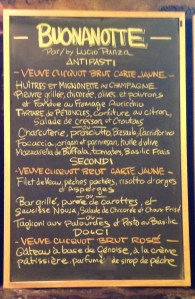 - BUONANOTTE -
Par/by Lucio Panza
ANTIPASTI
- VEUVE CLICQUOT BRUT CARTE JAUNE -
HUÎTRES et MIGNONETTE au CHAMPAGNE
Pieuvre grillée, chicorée, olives, et poivrons
et Fondue au Fromage Auricchio
Tartare de PÉTONCLES, confiture au citron,
Salade de cresson, et Croutons
ou
Charcuterie, prosciutto Bresaola,
Focaccia, origan et parmesan, huile d'olive
Mozzarella de Buffala, tomates, Basilic Frais
SECONDI
- VEUVE CLICQUOT BRUT CARTE JAUNE -
Filet de Veau, pêches pochées, risotto d'orges
et d'asperges
ou
Bar grillé, purée de carottes, et
Saucisse Nduja, Salade de Chicorée et
ou
Taglioni aux Palourdes, et Pesto au Basilic
DOLCI
- VEUVE CLICQUOT BRUT ROSÉ -
Gâteau à base de Génoise, à la crème
pâtissière parfumé de sirop de pêche